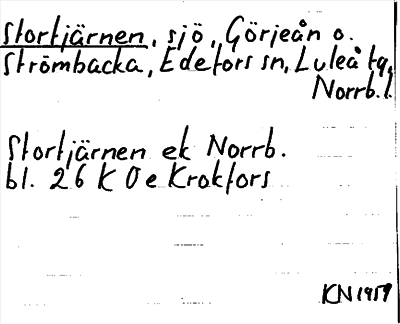 Stortjärnen, sjö, Görjeån o.
Strömbacka, Edefors sn, Luleå tg,
Norrb.l.
Stortjärnen ek Norrb.
bl. 26 K 0 e Krokfors
KN 1959